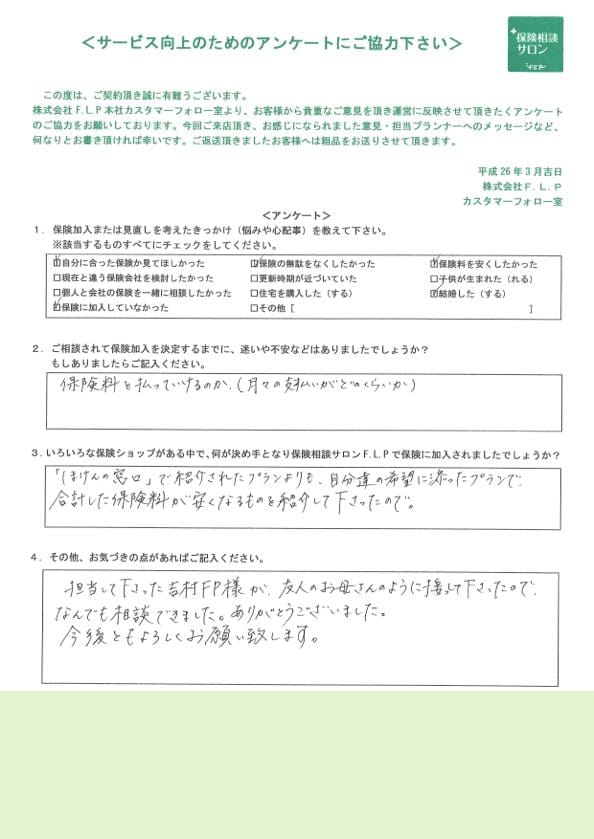 ＜サービス向上のためのアンケートにご協力下さい＞
+保険相談
サロン
F.L.P
この度は、ご契約頂き誠に有難うございます。
株式会社F.L.P本社カスタマーフォロー室より、お客様から貴重なご意見を頂き運営に反映させて頂きたくアンケート
のご協力をお願いしております。今回ご来店頂き、お感じになられました意見・担当プランナーへのメッセージなど、
何なりとお書き頂ければ幸いです。ご返送頂きましたお客様へは粗品をお送りさせて頂きます。
平成26年3月吉日
株式会社F.L.P
カスタマーフォロー室
＜アンケート＞
1．保険加入または見直しを考えたきっかけ（悩みや心配事）を教えて下さい。
※該当するものすべてにチェックをしてください。
☑自分に合った保険か見てほしかった ☑保険の無駄をなくしたかった ☑保険料を安くしたかった
□現在と違う保険会社を検討したかった □更新時期が近づいていた □子供が生まれた（れる）
□個人と会社の保険を一緒に相談したかった □住宅を購入した（する） ☑結婚した（する）
☑保険に加入していなかった □その他［ ］
2．ご相談されて保険加入を決定するまでに、迷いや不安などはありましたでしょうか？
もしありましたらご記入ください。
保険料を払っていけるのか。(月々の支払いがどのくらいか)
3．いろいろな保険ショップがある中で、何が決め手となり保険相談サロンF.L.Pで保険に加入されましたでしょうか？
「ほけんの窓口」で紹介されたプランよりも、自分達の希望に添ったプランで、
合計した保険料が安くなるものを紹介して下さったので。
4．その他、お気づきの点があればご記入ください。
担当して下さった吉村FP様が、友人のお母さんのように接して下さったので、
なんでも相談できました。ありがとうございました。
今後ともよろしくお願い致します。